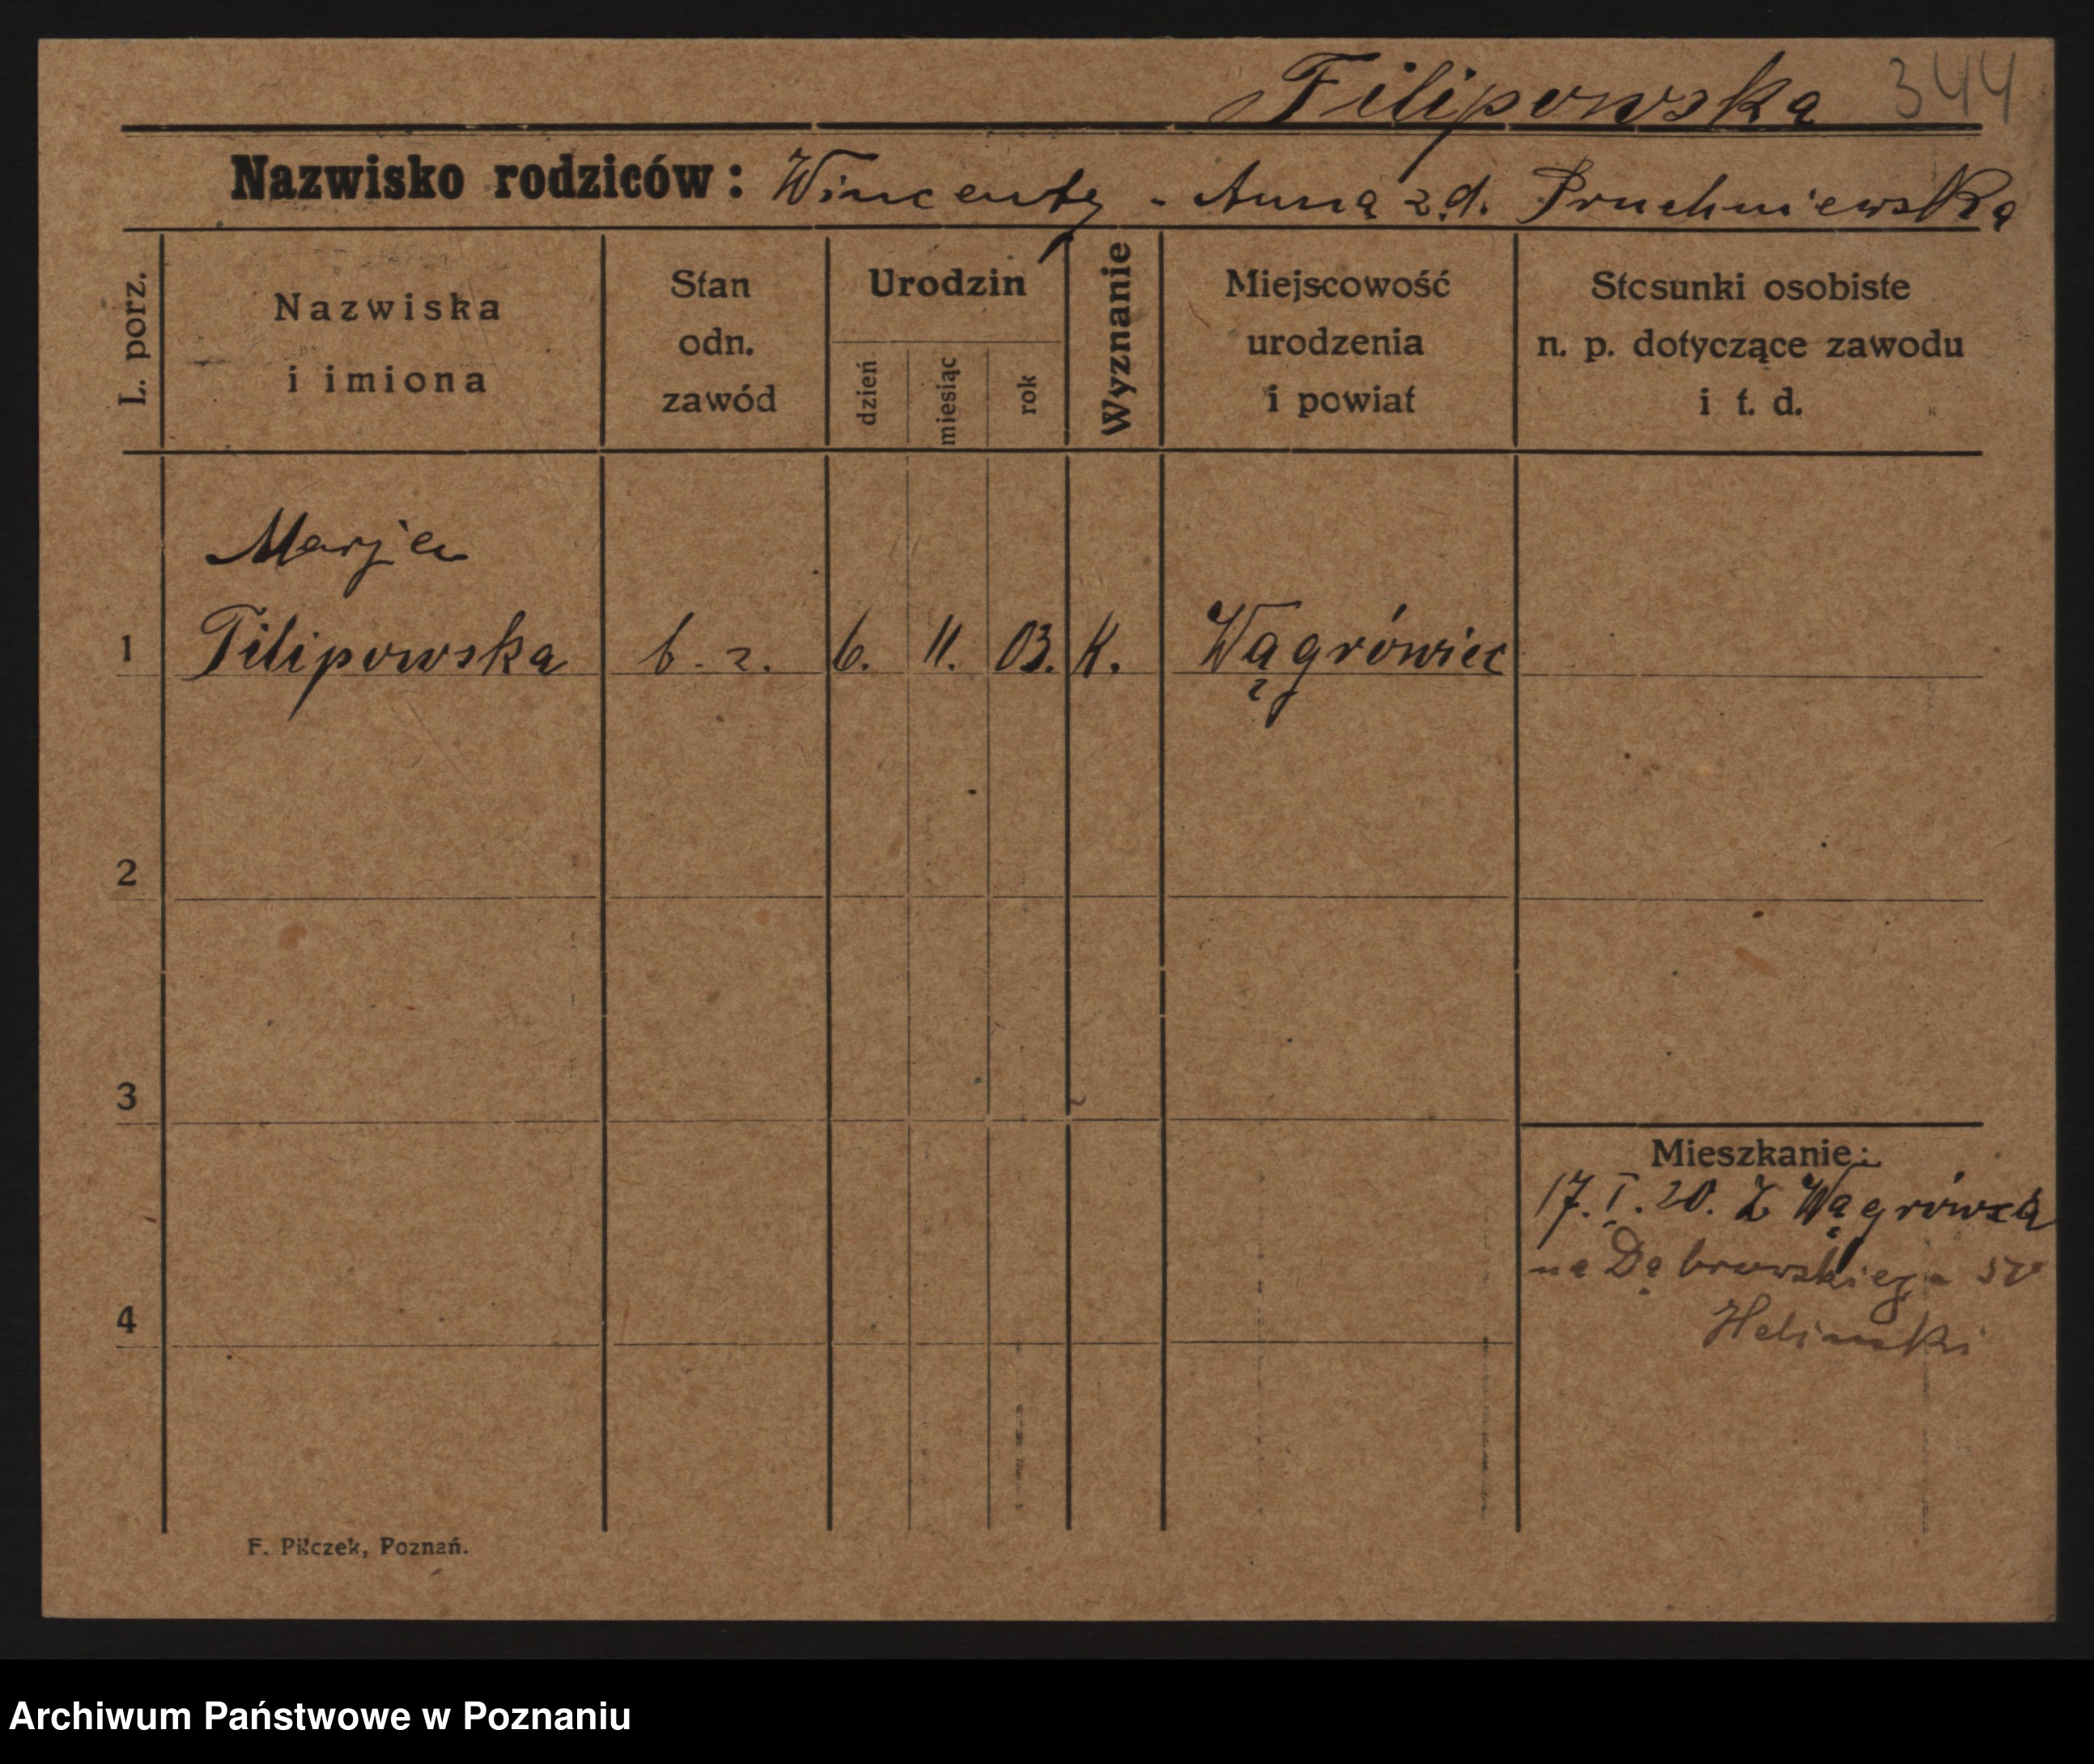 Filipowska 344
Nazwisko rodziców: Wincenty - Anna z d. Pruchniewska
L. porz.
Nazwiska
i imiona
Stan
odn.
zawód
Urodzin
dzień
miesiąc
rok
Wyznanie
Miejscowość
urodzenia
i powiat
Stosunki osobiste
n. p. dotyczące zawodu
i t. d.
Marja
1 Filipowska b. z. 6. 11. 03. K. Wągrówiec
2
3
4
Mieszkanie:
17. I. 20. z Wągrówca
na Dąbrowskiego
F. Pilczek, Poznań.
Archiwum Państwowe w Poznaniu